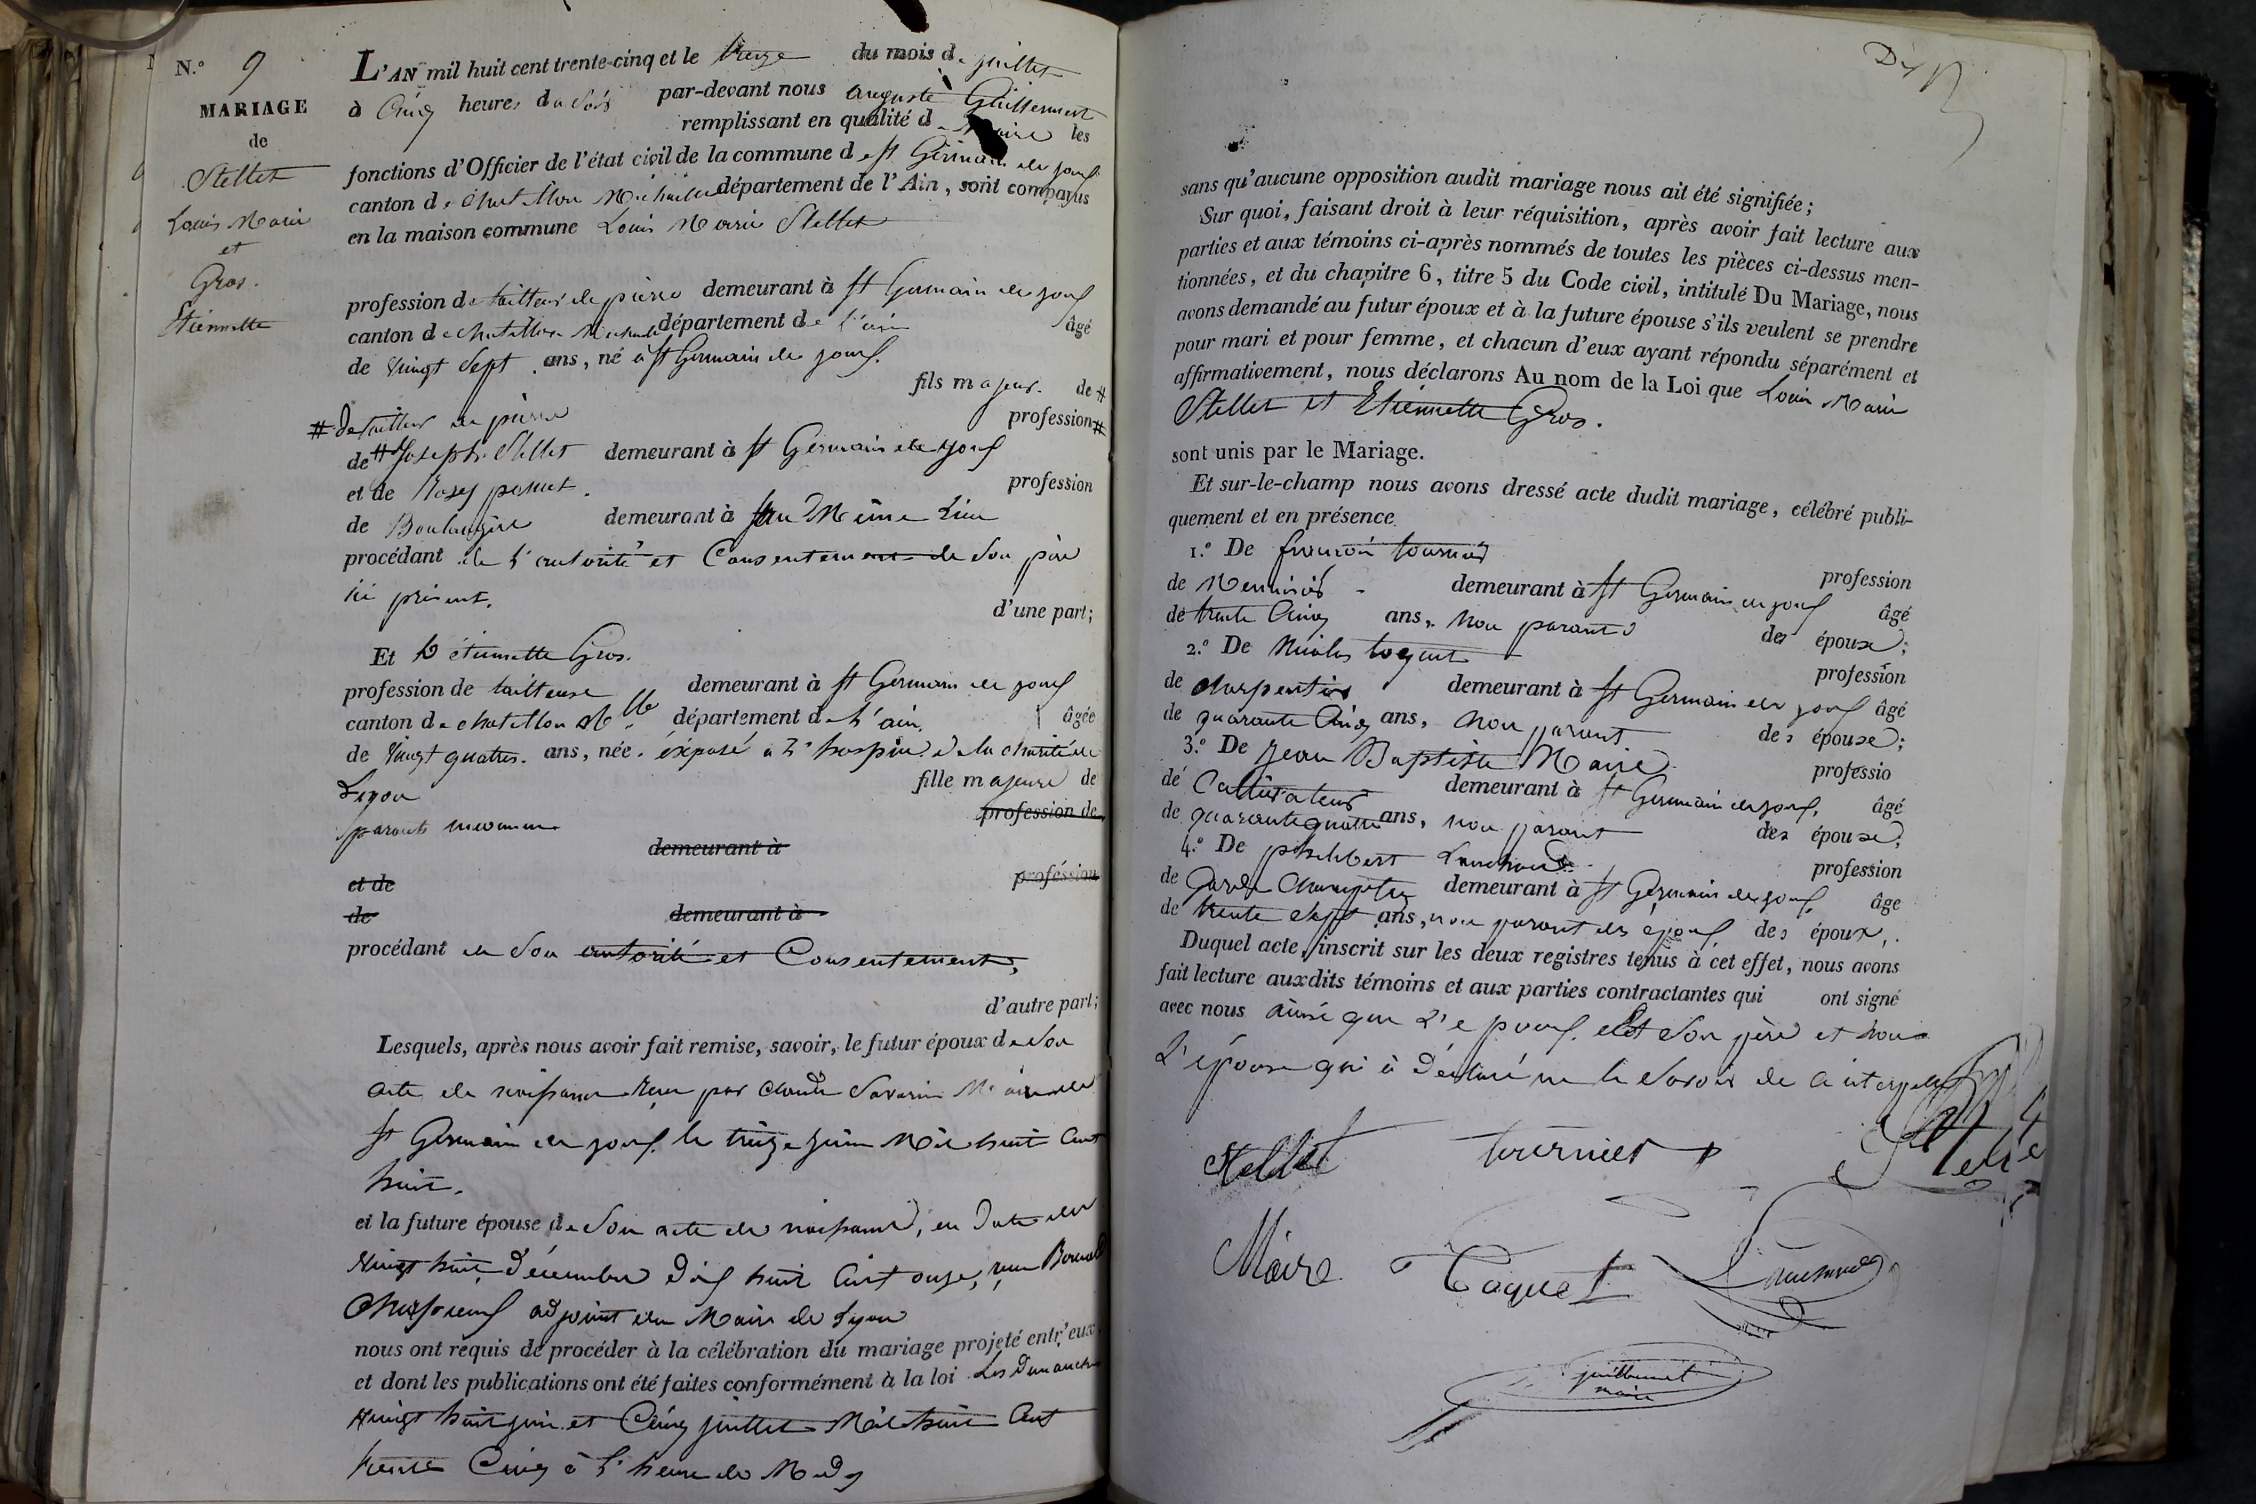 N.° 9
MARIAGE
de
Stellet
Louis Marie
et
Gros.
Etiennette
L'AN mil huit cent trente-cinq et le treize du mois de juillet
à Cinq heures du soir par-devant nous auguste Guillermet
remplissant en qualité de Maire les
fonctions d'Officier de l'état civil de la commune de st Germain de joux
canton de chatillon Michaille département de l'Ain, sont comparus
en la maison commune Louis Marie Stellet
profession de tailleur de pierre demeurant à st Germain de joux
canton de chatillon Michaille département de l'ain âgé
de vingt sept ans, né à st Germain de joux.
fils majeur. de #
# de tailleur de pierre profession #
de # Joseph Stellet demeurant à st Germain de joux
et de Rosy profession
de Boulangère demeurant à au Même Lieu
procédant de l'autorité et Consentement de son père
ici présent. d'une part;
Et D étiennette Gros.
profession de tailleuse demeurant à st Germain de joux
canton de chatillon Mlle département de l'ain âgée
de vingt quatre. ans, née. éxposé a l'hospice de la charité de
Lyon fille majeure de
parents inconnu profession de
demeurant à
et de profession
de demeurant à
procédant de son autorité et Consentement,
d'autre part;
Lesquels, après nous avoir fait remise, savoir, le futur époux de son
acte de naissance reçu par claude Savarin Maire de
st Germain de joux. le treize juin Mil huit cent
huit.
et la future épouse de son acte de naissance, en date du
vingt huit décembre dix huit cent onze, reçu
adjoint du Maire de Lyon
nous ont requis de procéder à la célébration du mariage projeté entr'eux,
et dont les publications ont été faites conformément à la loi Les Dimanches
vingt huit juin et Cinq juillet Mil huit Cent
trente Cinq à l'heure de Midy
Dix
sans qu'aucune opposition audit mariage nous ait été signifiée;
Sur quoi, faisant droit à leur réquisition, après avoir fait lecture aux
parties et aux témoins ci-après nommés de toutes les pièces ci-dessus men-
tionnées, et du chapitre 6, titre 5 du Code civil, intitulé Du Mariage, nous
avons demandé au futur époux et à la future épouse s'ils veulent se prendre
pour mari et pour femme, et chacun d'eux ayant répondu séparément et
affirmativement, nous déclarons Au nom de la Loi que Louis Marie
Stellet et Etiennette Gros.
sont unis par le Mariage.
Et sur-le-champ nous avons dressé acte dudit mariage, célébré publi-
quement et en présence
1.° De françois tournier profession
de Menuisier demeurant à st Germain de joux âgé
de trente Cinq ans, non parant des époux;
2.° De Nicolas toquet profession
de charpentier demeurant à st Germain de joux âgé
de quarante Cinq ans, non parant des épouse;
3.° De Jean Baptiste Maire professio
de Cultivateur demeurant à st Germain de joux, âgé
de quarante quatre ans, non parant des épouse;
4.° De philibert profession
de Garde champetre demeurant à st Germain de joux, âge
de trente sept ans, non parant des époux des époux,
Duquel acte, inscrit sur les deux registres tenus à cet effet, nous avons
fait lecture auxdits témoins et aux parties contractantes qui ont signé
avec nous ainsi que L'epoux. et son père et non
L'épouse qui à déclaré ne le savoir de ce
Stellet tournier Stellet
Maire Toquet
guillermet
maire